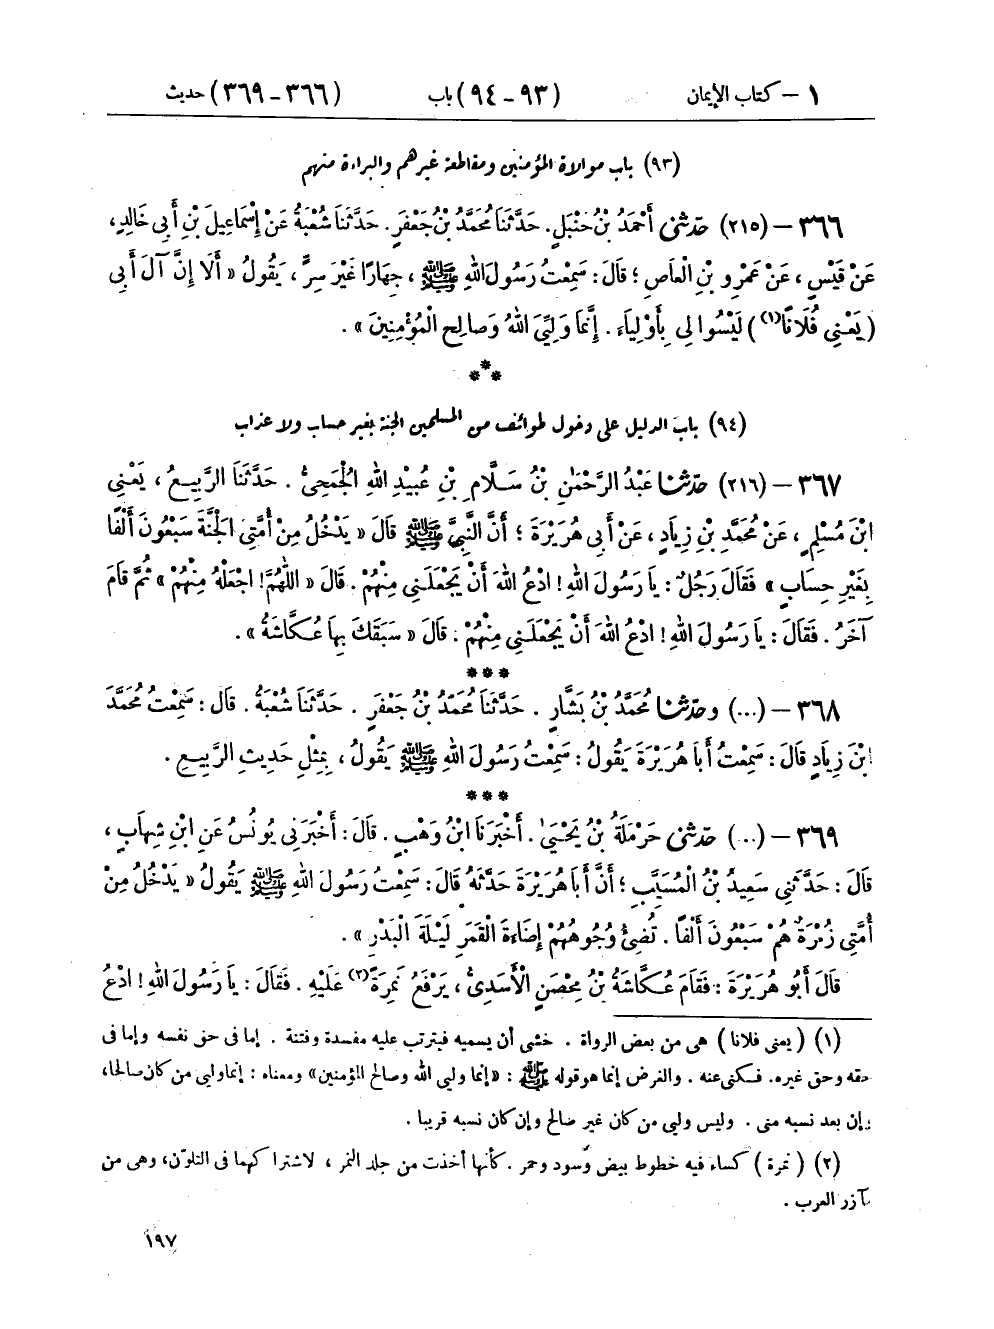 ١ – كتاب الإيمان (٩٣ – ٩٤) باب (٣٦٦ – ٣٦٩) حديث
(٩٣) باب موالاة المؤمنين ومقاطعة غيرهم والبراءة منهم
٣٦٦ – (٢١٥) حَدَّثَنِي أَحْمَدُ بْنُ حَنْبَلٍ. حَدَّثَنَا مُحَمَّدُ بْنُ جَعْفَرٍ. حَدَّثَنَا شُعْبَةُ عَنْ إِسْمَاعِيلَ بْنِ أَبِي خَالِدٍ،
عَنْ قَيْسٍ، عَنْ عَمْرِو بْنِ الْعَاصِ؛ قَالَ: سَمِعْتُ رَسُولَ اللهِ ﷺ، جِهَارًا غَيْرَ سِرٍّ، يَقُولُ «أَلَا إِنَّ آلَ أَبِي
(يَعْنِي فُلَانًا(١)) لَيْسُوا لِي بِأَوْلِيَاءَ. إِنَّمَا وَلِيِّيَ اللهُ وَصَالِحُ الْمُؤْمِنِينَ».
***
(٩٤) باب الدليل على دخول طوائف من المسلمين الجنة بغير حساب ولا عذاب
٣٦٧ – (٢١٦) حَدَّثَنَا عَبْدُ الرَّحْمَٰنِ بْنُ سَلَّامِ بْنِ عُبَيْدِ اللهِ الْجُمَحِيُّ. حَدَّثَنَا الرَّبِيعُ، يَعْنِي
ابْنَ مُسْلِمٍ، عَنْ مُحَمَّدِ بْنِ زِيَادٍ، عَنْ أَبِي هُرَيْرَةَ؛ أَنَّ النَّبِيَّ ﷺ قَالَ «يَدْخُلُ مِنْ أُمَّتِي الْجَنَّةَ سَبْعُونَ أَلْفًا
بِغَيْرِ حِسَابٍ» فَقَالَ رَجُلٌ: يَا رَسُولَ اللهِ! ادْعُ اللهَ أَنْ يَجْعَلَنِي مِنْهُمْ. قَالَ «اللّٰهُمَّ! اجْعَلْهُ مِنْهُمْ» ثُمَّ قَامَ
آخَرُ. فَقَالَ: يَا رَسُولَ اللهِ! ادْعُ اللهَ أَنْ يَجْعَلَنِي مِنْهُمْ. قَالَ «سَبَقَكَ بِهَا عُكَّاشَةُ».
***
٣٦٨ – (...) وحَدَّثَنَا مُحَمَّدُ بْنُ بَشَّارٍ. حَدَّثَنَا مُحَمَّدُ بْنُ جَعْفَرٍ. حَدَّثَنَا شُعْبَةُ. قَالَ: سَمِعْتُ مُحَمَّدَ
ابْنَ زِيَادٍ قَالَ: سَمِعْتُ أَبَا هُرَيْرَةَ يَقُولُ: سَمِعْتُ رَسُولَ اللهِ ﷺ يَقُولُ، بِمِثْلِ حَدِيثِ الرَّبِيعِ.
***
٣٦٩ – (...) حَدَّثَنِي حَرْمَلَةُ بْنُ يَحْيَىٰ. أَخْبَرَنَا ابْنُ وَهْبٍ. قَالَ: أَخْبَرَنِي يُونُسُ عَنِ ابْنِ شِهَابٍ،
قَالَ: حَدَّثَنِي سَعِيدُ بْنُ الْمُسَيَّبِ؛ أَنَّ أَبَا هُرَيْرَةَ حَدَّثَهُ قَالَ: سَمِعْتُ رَسُولَ اللهِ ﷺ يَقُولُ «يَدْخُلُ مِنْ
أُمَّتِي زُمْرَةٌ هُمْ سَبْعُونَ أَلْفًا. تُضِيءُ وُجُوهُهُمْ إِضَاءَةَ الْقَمَرِ لَيْلَةَ الْبَدْرِ».
قَالَ أَبُو هُرَيْرَةَ: فَقَامَ عُكَّاشَةُ بْنُ مِحْصَنٍ الْأَسَدِيُّ، يَرْفَعُ نَمِرَةً(٢) عَلَيْهِ. فَقَالَ: يَا رَسُولَ اللهِ! ادْعُ
(١) (يعني فلانا) هي من بعض الرواة. خشي أن يسميه فيترتب عليه مفسدة وفتنة. إما في حق نفسه وإما في
حقه وحق غيره. فكنى عنه. والغرض إنما هو قوله ﷺ: «إنما وليي الله وصالح المؤمنين» ومعناه: إنما وليي من كان صالحا،
وإن بعد نسبه مني. وليس وليي من كان غير صالح وإن كان نسبه قريبا.
(٢) (نمرة) كساء فيه خطوط بيض وسود وحمر. كأنها أخذت من جلد النمر، لاشتراكهما في التلوّن، وهي من
مآزر العرب.
١٩٧